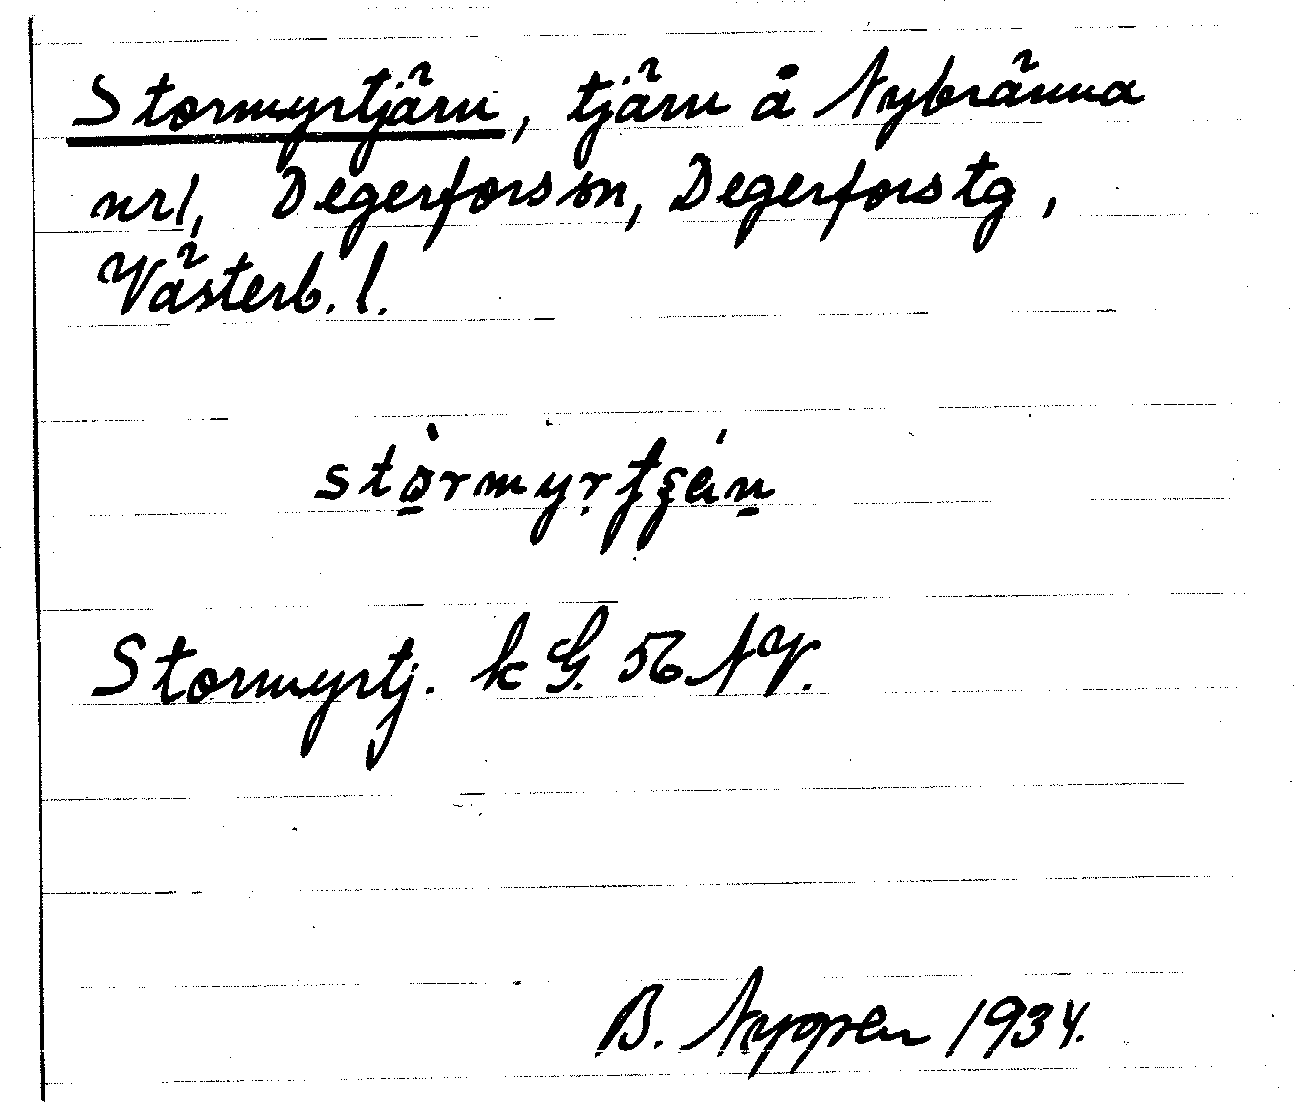 Stormyrtjärn, tjärn å Nybränna
nr1, Degerfors sn, Degerfors tg,
Västerb. l.
Stormyrtj. k G. 56 NV.
B. Nygren 1934.